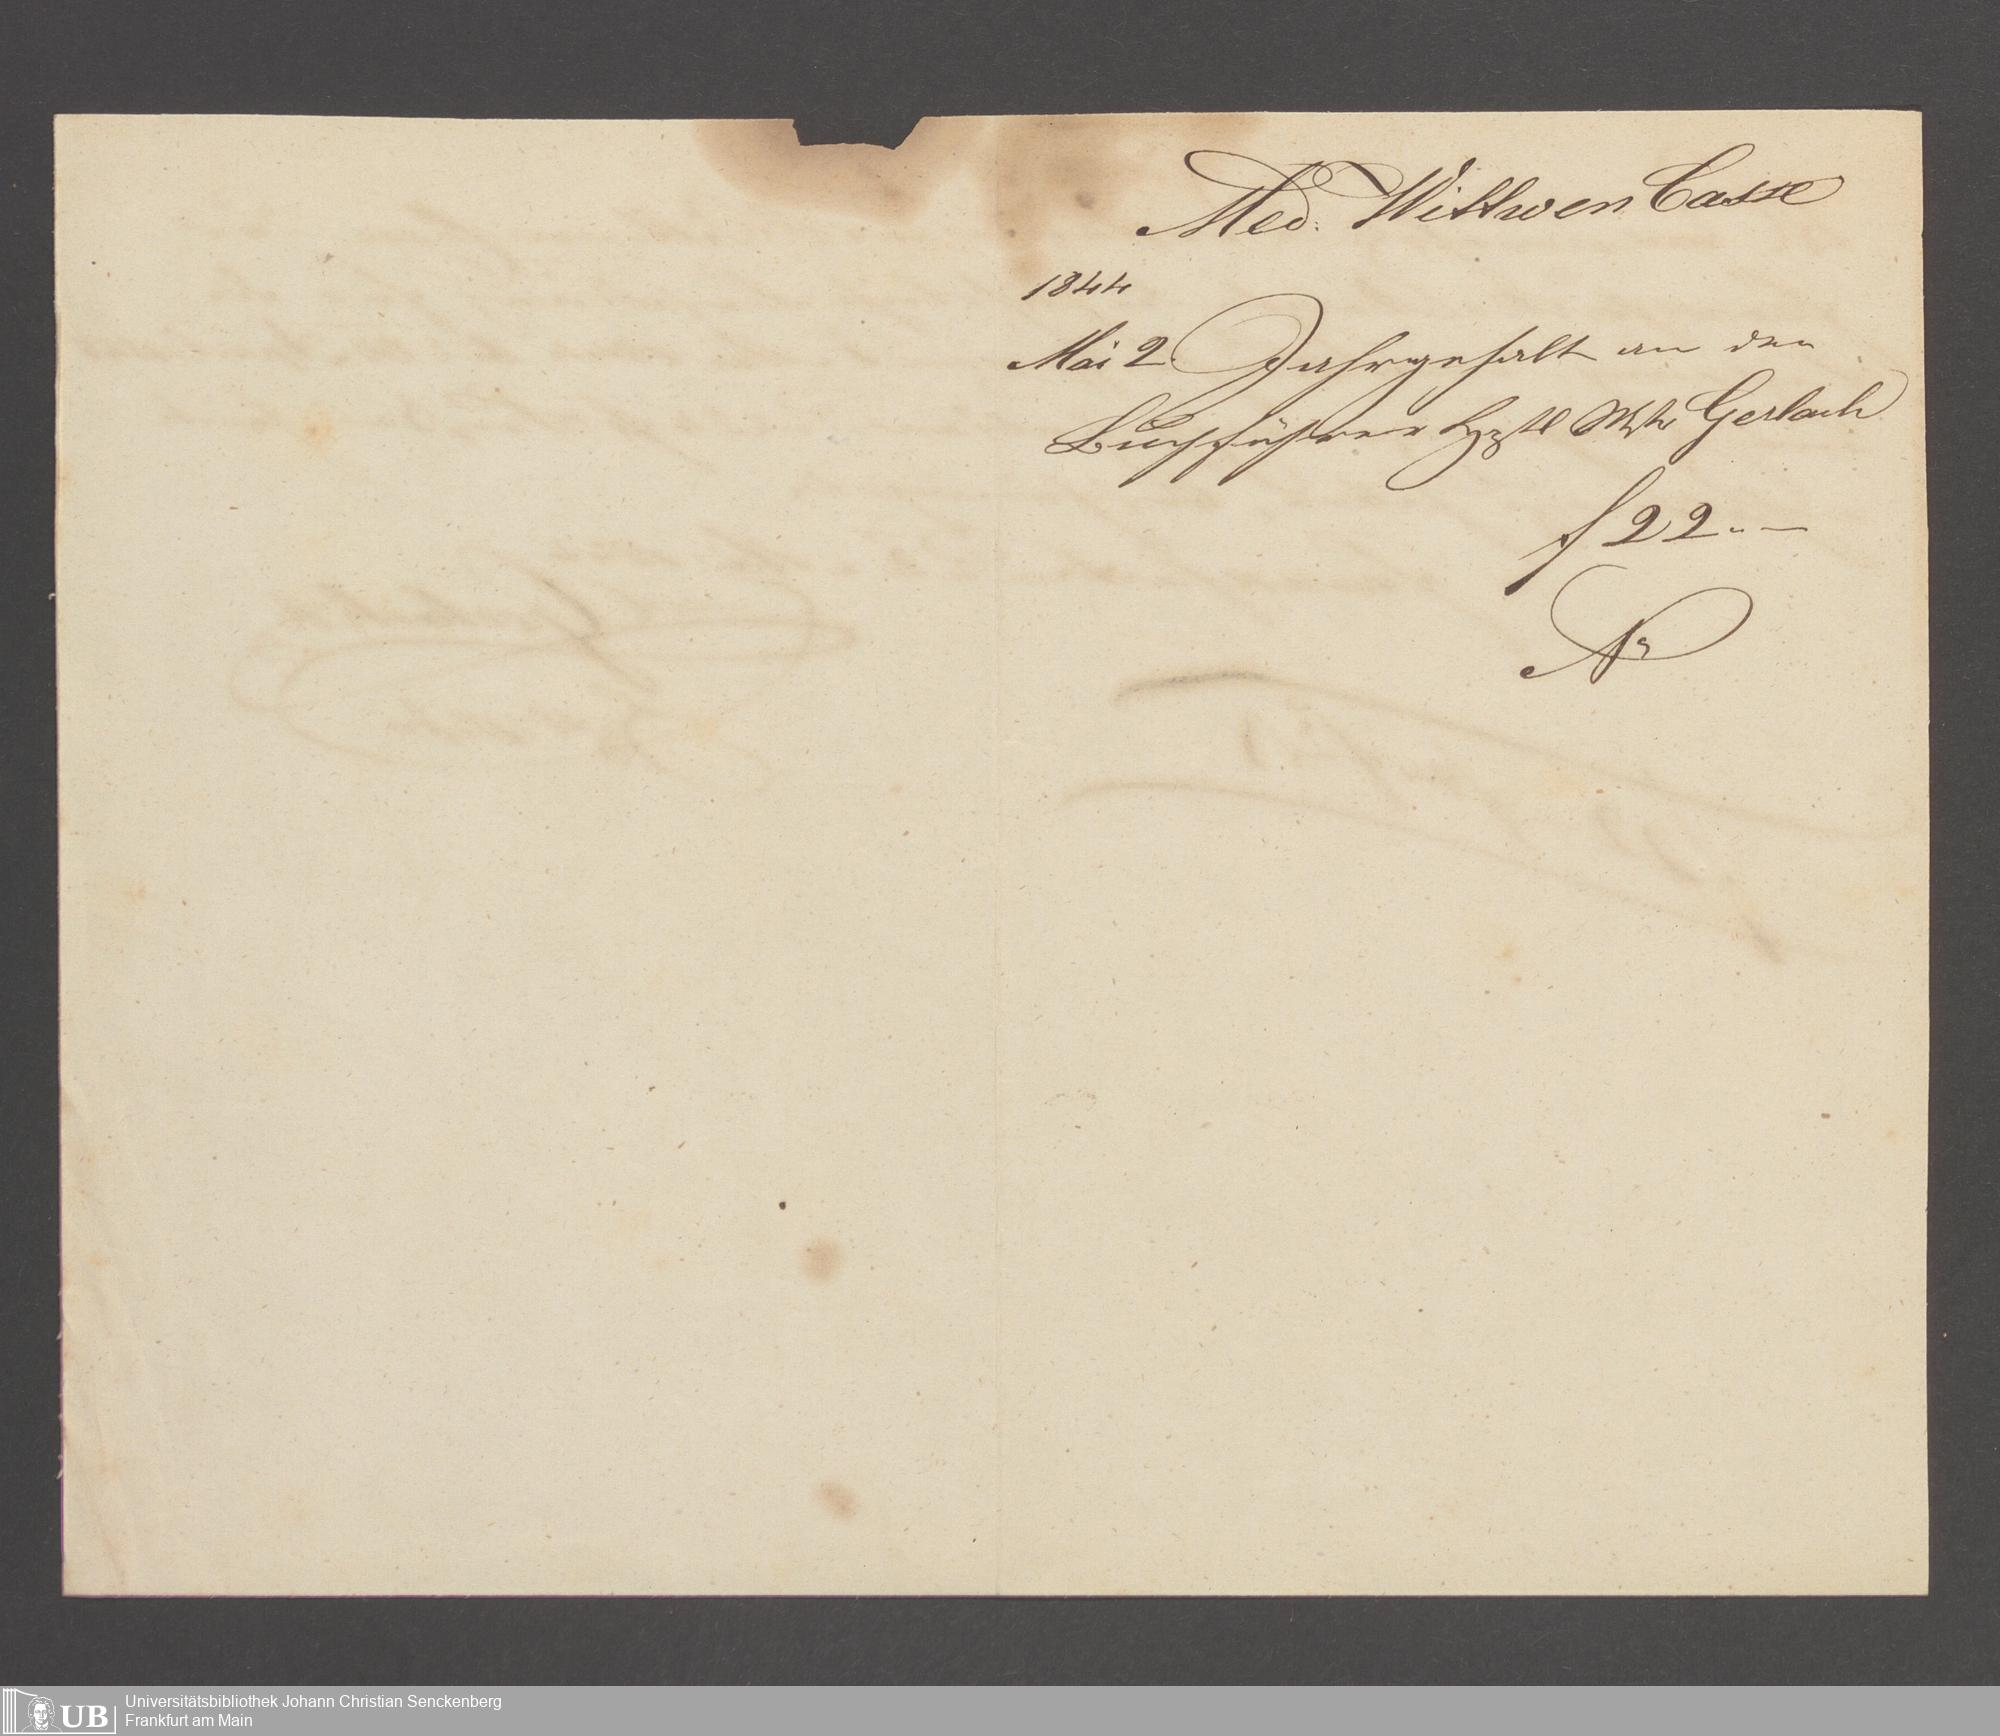 Med. Wittwen Casse
1844
Mai 2 Jahrgehalt an den
Buchführer Hospitl Mstr Gerlach
f 22.. —
Nr
UB
Universitätsbibliothek Johann Christian Senckenberg
Frankfurt am Main